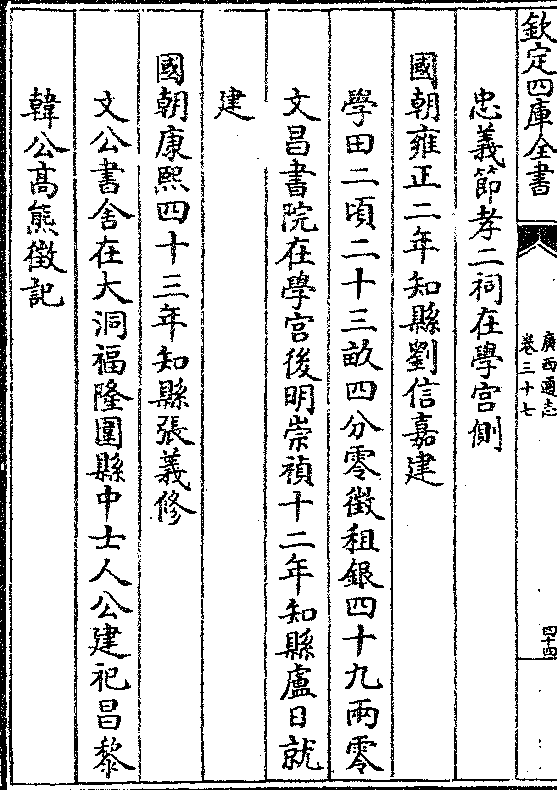 欽定四庫全書
廣西通志
卷三十七
四十四
忠義節孝二祠在學宮側
國朝雍正二年知縣劉信嘉建
學田二頃二十三畝四分零徵租銀四十九兩零
文昌書院在學宮後明崇禎十二年知縣盧日就
建
國朝康熙四十三年知縣張義修
文公書舍在大洞福隆圍縣中士人公建祀昌黎
韓公高熊徵記